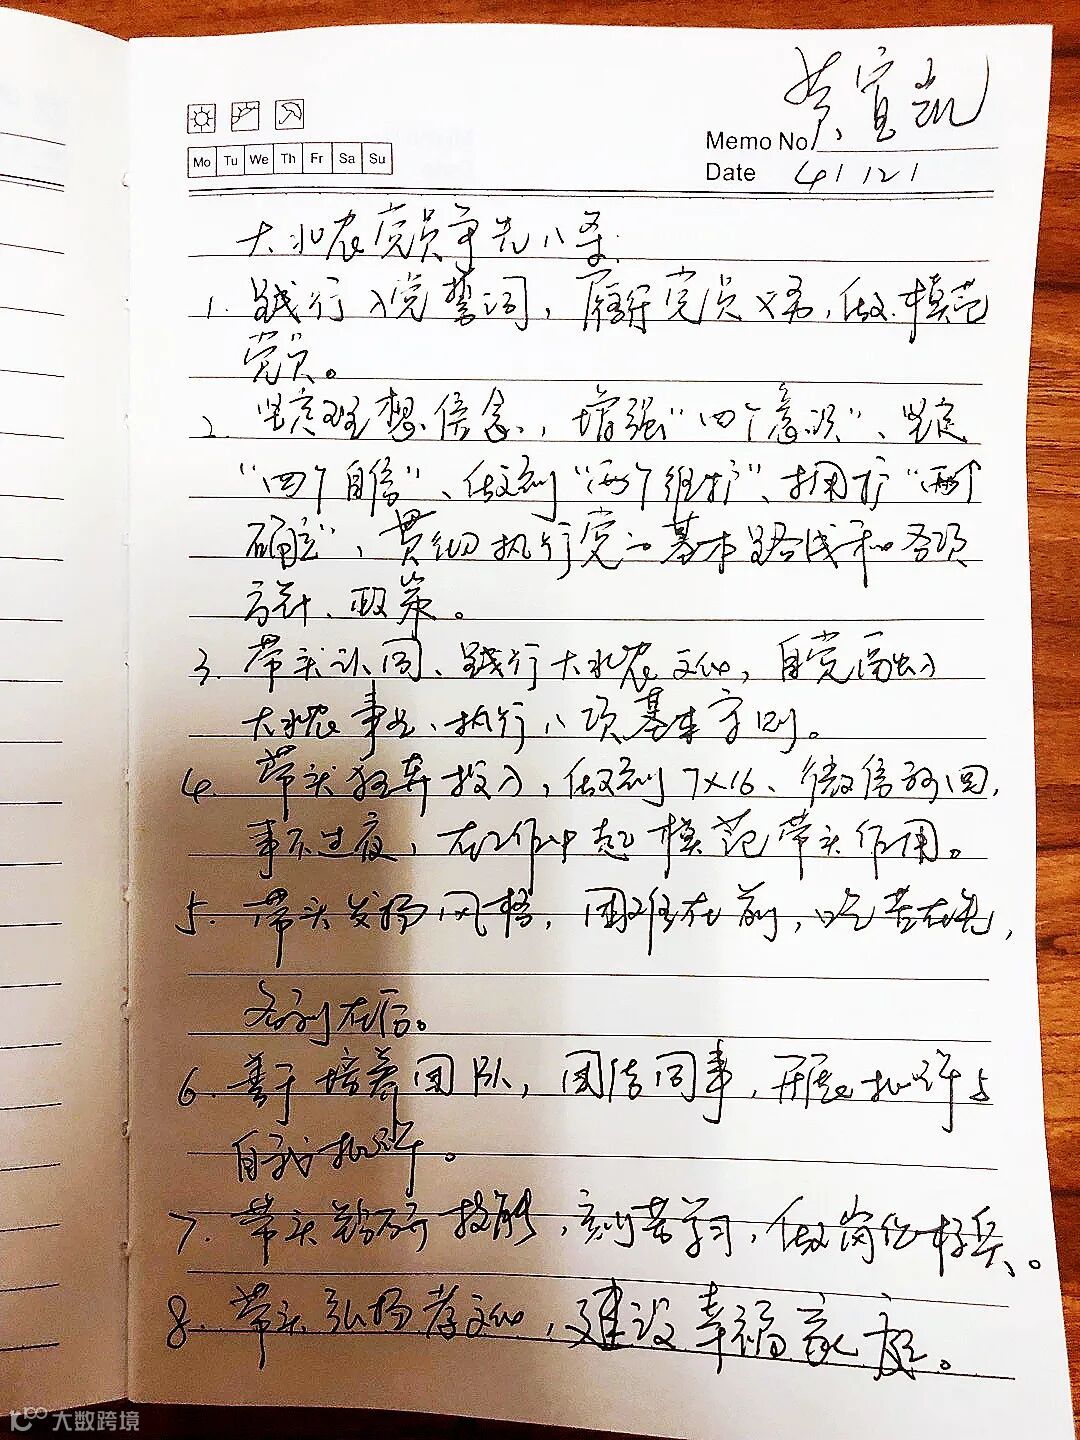 黄宜凯
Memo No
Mo Tu We Th Fr Sa Su
Date 4/12/
大北农党员争先八条:
1. 践行入党誓词,履行党员义务,做模范
党员。
2. 坚定理想信念,增强“四个意识”、坚定
“四个自信”、做到“两个维护”、拥护“两个
确立”,贯彻执行党的基本路线和各项
方针、政策。
3. 带头认同、践行大北农文化,自觉融入
大北农事业、执行八项基本守则。
4. 带头狂奔投入,做到7X16、微信秒回,
事不过夜,在工作中起模范带头作用。
5. 带头发扬风格,困难在前,吃苦在先,
名利在后。
6. 善于培养团队,团结同事,开展批评与
自我批评。
7. 带头钻研技能,刻苦学习,做岗位标兵。
8. 带头弘扬孝文化,建设幸福家庭。
大数跨境